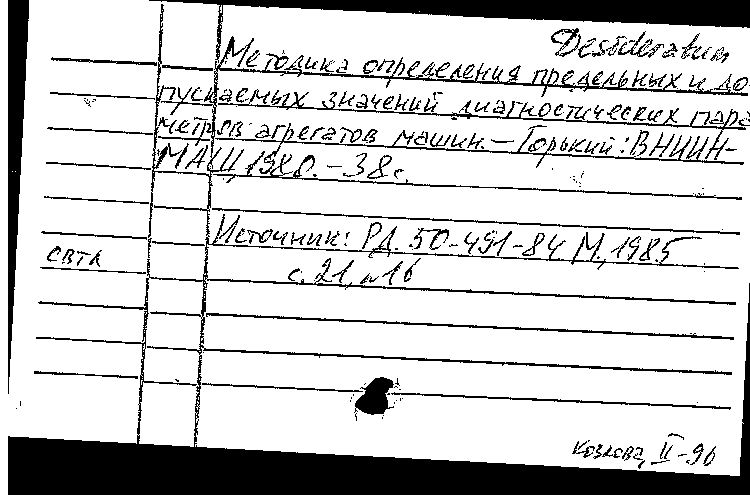 Desideratum
Методика определения предельных и до-
пускаемых значений диагностических пара-
метров агрегатов машин. — Горький: ВНИИН-
МАШ, 1980. - 38 с.
Источник: РД. 50-491-84 М., 1985
с. 21, п 16
свтк
Козлова, II-90